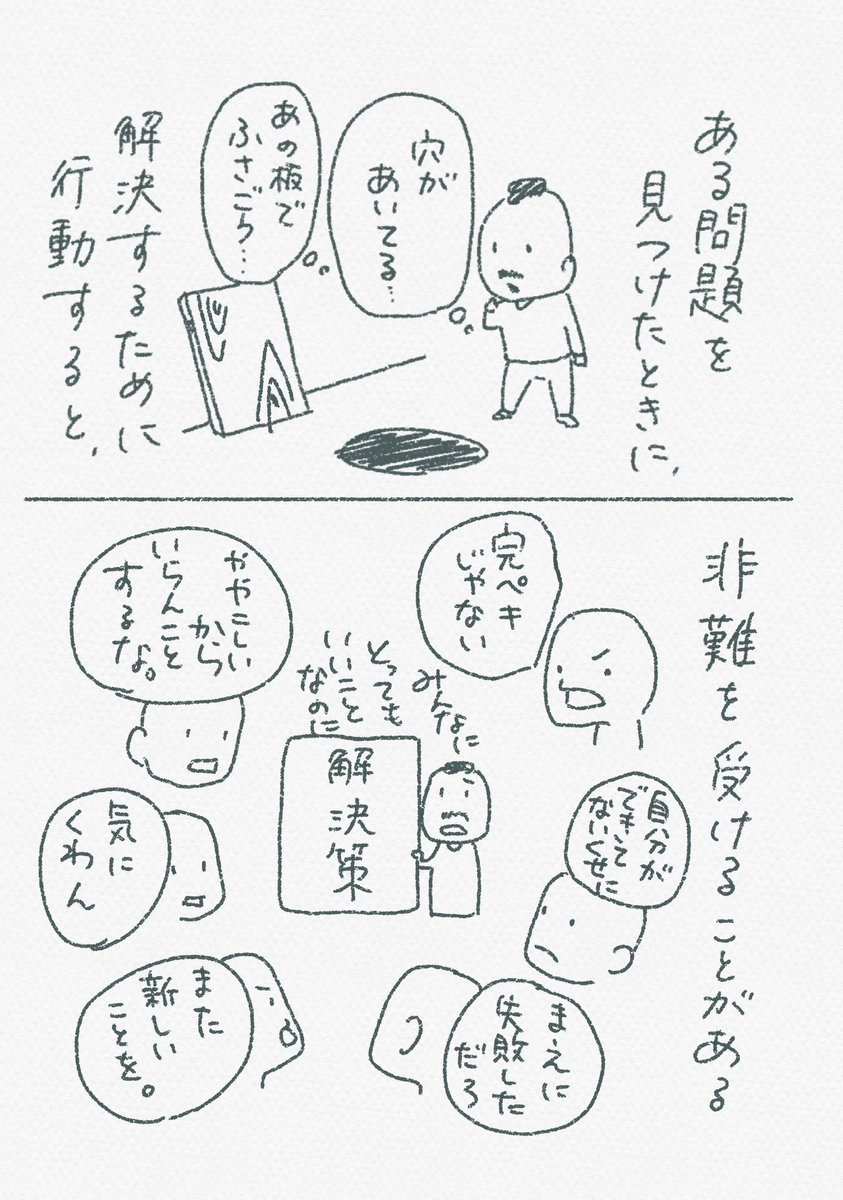 ある問題を
見つけたときに、
穴が
あいてる…
あの板で
ふさごう…
解決するために
行動すると、
非難を受けることがある
完ペキ
じゃない
ややこしい
から
いらんこと
するな。
みんなに
とっても
いいこと
なのに
解決策
自分が
できて
ないくせに
気に
くわん
まえに
失敗した
だろ
また
新しい
ことを。